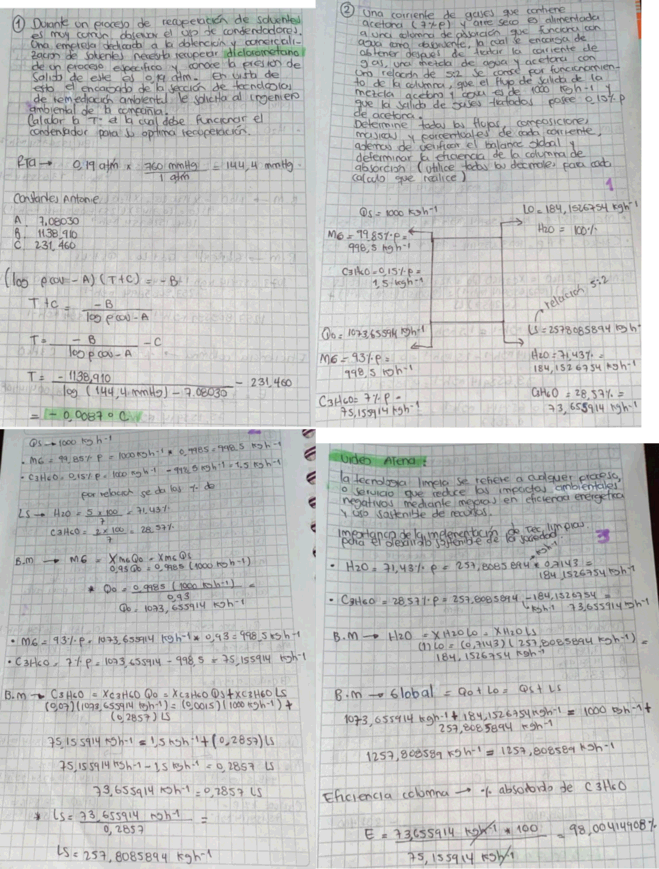 ① Durante un proceso de recuperación de solventes
es muy común observar el uso de condensadores.
Una empresa dedicada a la obtención y comerciali-
zación de solventes necesita recuperar diclorometano
de un proceso específico y conoce la presión de
salida de este es 0,19 atm. En vista de
esto el encargado de la sección de tecnologías
de remediación ambiental le solicita al ingeniero
ambiental de la compañía.
Calcular la T° a la cual debe funcionar el
condensador para su óptima recuperación.
Rta → 0,19 atm × 760 mmHg / 1 atm = 144,4 mmHg
Constantes Antoine
A 7,08030
B. 1138,910
C 231,460
(log pcou - A) (T+C) = -B
T+C = -B / log pcou - A
T = -B / log pcou - A - C
T = -1138,910 / log (144,4 mmHg) - 7.08030 - 231,460
= -0,0087° C
② Una corriente de gases que contiene
acetona (7%p) y aire seco es alimentada
a una columna de absorción que funciona con
agua como absorbente, la cual se encarga de
obtener después de tratar la corriente de
gas, una mezcla de agua y acetona con
una relación de 5:2 se conoce por funcionamien-
to de la columna, que el flujo de salida de la
mezcla acetona / agua es de 1000 kgh-1 y
que la salida de gases tratados posee 0,15%p
de acetona.
Determine todos los flujos, composiciones
másicas y porcentuales de cada corriente,
además de verificar el balance global y
determinar la eficiencia de la columna de
absorción (utilice todos los decimales para cada
cálculo que realice)
1
Qs = 1000 kgh-1
Lo = 184,1526754 kgh-1
MG = 99,85%p =
998,5 kgh-1
H2O = 100%
C3H6O = 0,15%p =
1,5 kgh-1
relación 5:2
Qo = 1073,655914 kgh-1
Ls = 2578085894 kgh-
MG = 93%p =
998,5 kgh-1
H2O = 71,43% =
184,1526754 kgh-1
C3H6O = 7%p =
75,155914 kgh-1
C3H6O = 28,57% =
73,655914 kgh-1
Qs → 1000 kgh-1
· MG = 99,85%p = 1000 kgh-1 * 0,9985 = 998,5 kgh-1
· C3H6O = 0,15%p = 1000 kgh-1 - 998,5 kgh-1 = 1,5 kgh-1
por relación se da los % do
Ls → H2O = 5 × 100 / 7 = 71,43%
C3H6O = 2 × 100 / 7 = 28,57%
B.m → MG = XMG Qo = XMG Qs
0,93 Qo = 0,9985 (1000 kgh-1)
* Qo = 0,9985 (1000 kgh-1) / 0,93 =
Qo = 1073,655914 kgh-1
· MG = 93%p = 1073,655914 kgh-1 * 0,93 = 998,5 kgh-1
· C3H6O = 7%p = 1073,655914 - 998,5 = 75,155914 kgh-1
B.m → C3H6O = XC3H6O Qo = XC3H6O Qs + XC3H6O Ls
(0,07)(1073,655914 kgh-1) = (0,0015)(1000 kgh-1) +
(0,2857) Ls
75,155914 kgh-1 = 1,5 kgh-1 + (0,2857) Ls
75,155914 kgh-1 - 1,5 kgh-1 = 0,2857 Ls
73,655914 kgh-1 = 0,2857 Ls
* Ls = 73,655914 kgh-1 / 0,2857 =
Ls = 257,8085894 kgh-1
Video Atena:
la tecnología limpia se refiere a cualquier proceso,
o servicio que reduce los impactos ambientales
negativos mediante mejoras en eficiencia energética
y uso sostenible de recursos.
Importancia de la implementación de Tec, limpias
para el desarrollo sostenible de la sociedad.
3
kgh-1
· H2O = 71,43%p = 257,8085894 * 0,7143 =
184,1526754 kgh-1
· C3H6O = 28.57%p = 257,8085894 - 184,1526754 =
kgh-1 73,655914 kgh-1
B.m → H2O = XH2O Lo = XH2O Ls
(1) Lo = (0,7143) (257,8085894 kgh-1) =
184,1526754 kgh-1
B.m → Global = Qo + Lo = Qs + Ls
1073,655914 kgh-1 + 184,1526754 kgh-1 = 1000 kgh-1 +
257,8085894 kgh-1
1257,808589 kgh-1 = 1257,808589 kgh-1
Eficiencia columna → % absorbido de C3H6O
E = 73,655914 kgh-1 * 100 / 75,155914 kgh-1 = 98,00414908%